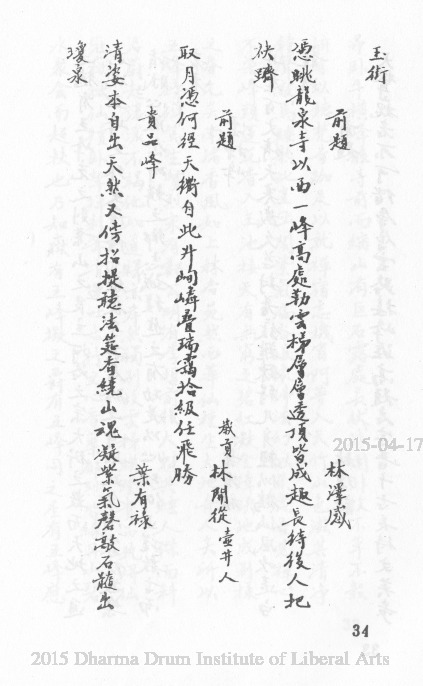 玉術
前題 林澤盛
憑眺龍泉寺以西一峰高處勒雲梯層層透頂皆成趣長待後人把
袂躋
前題 歲貢林開從壺井人
取月憑何徑天衢自此升峋嶙疊瑞靄拾級任飛勝
賁品峰 葉有祿
清姿本自出天然又傍招提穩法筵看繞山魂凝紫氣磬敲石髓出
瓊泉
34
2015-04-17
2015 Dharma Drum Institute of Liberal Arts